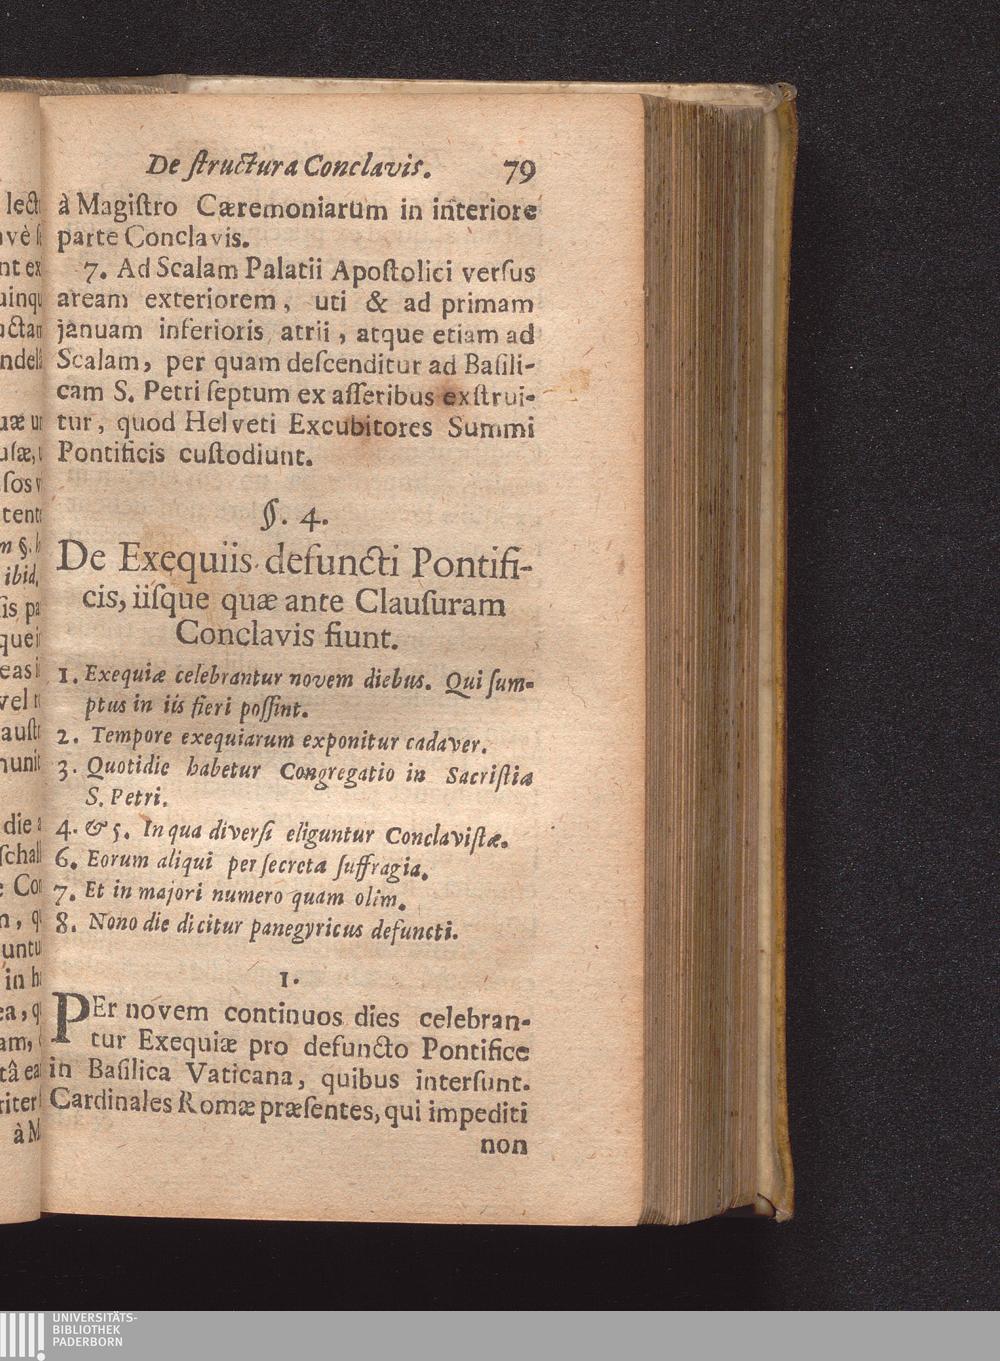 De ſtructura Conclavis. 79
à Magiſtro Cæremoniarum in interiore
parte Conclavis.
7. Ad Scalam Palatii Apoſtolici verſus
aream exteriorem, uti & ad primam
januam inferioris atrii, atque etiam ad
Scalam, per quam deſcenditur ad Baſili-
cam S. Petri ſeptum ex aſſeribus exſtrui-
tur, quod Helveti Excubitores Summi
Pontificis cuſtodiunt.
§. 4.
De Exequiis defuncti Pontifi-
cis, iiſque quæ ante Clauſuram
Conclavis fiunt.
1. Exequiæ celebrantur novem diebus. Qui ſum-
ptus in iis fieri poſſint.
2. Tempore exequiarum exponitur cadaver.
3. Quotidie habetur Congregatio in Sacriſtia
S. Petri.
4. & 5. In qua diverſi eliguntur Conclaviſtæ.
6. Eorum aliqui per ſecreta ſuffragia.
7. Et in majori numero quam olim.
8. Nono die dicitur panegyricus defuncti.
1.
PEr novem continuos dies celebran-
tur Exequiæ pro defuncto Pontifice
in Baſilica Vaticana, quibus interſunt.
Cardinales Romæ præſentes, qui impediti
non
UNIVERSITÄTS-
BIBLIOTHEK
PADERBORN